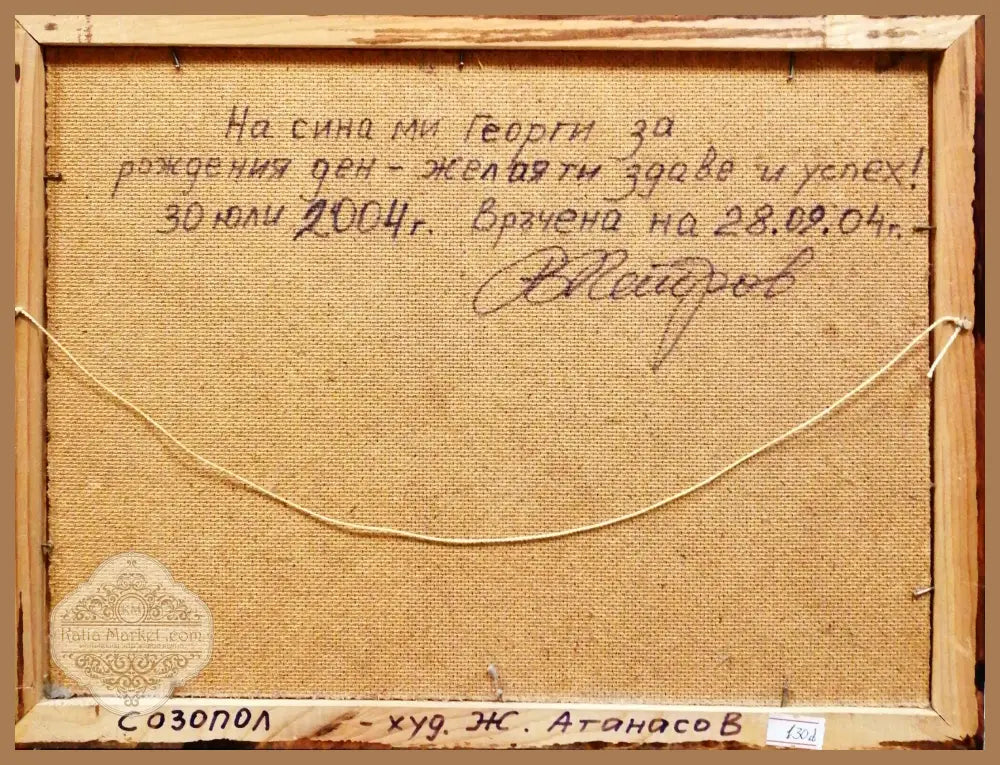 На сина ми Георги за
рождения ден - желая ти здраве и успех!
30 юли 2004г. Връчена на 28.09.04г. -
KM
Katia Market .com
Созопол - худ. Ж. Атанасов
130